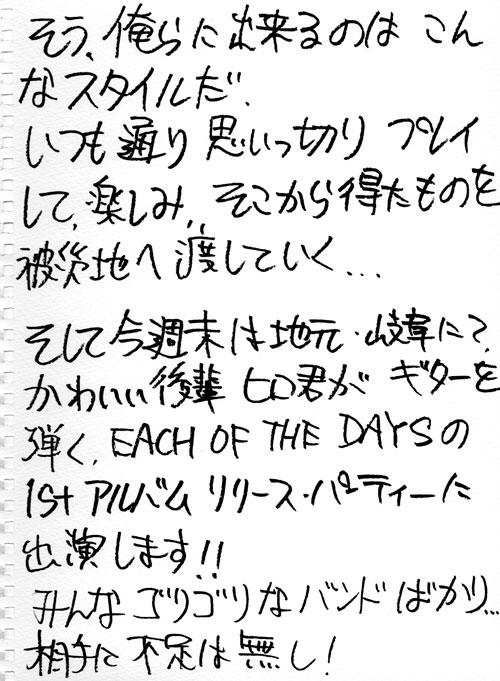 そう、俺らに出来るのは こん
なスタイルだ.
いつも通り 思いっ切り プレイ
して、楽しみ、そこから得たものを
被災地へ 渡していく...
そして今週末は地元・岐阜にて、
かわいい後輩 ヒロ君が ギターを
弾く、EACH OF THE DAYSの
1st アルバム リリース・パーティーに
出演します!!
みんな ゴリゴリな バンド ばかり...
相手に 不足は 無し!